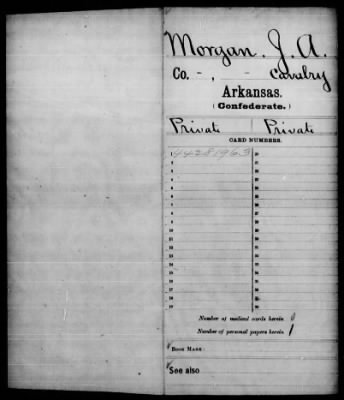 Morgan, J. A.
Co. - , - Cavalry
Arkansas.
(Confederate.)
Private Private
CARD NUMBERS.
1 44281963 20
2
3
4
5
6
7
8
9
10
11
12
13
14
15
16
17
18
19
Number of medical cards herein 0
Number of personal papers herein 1
BOOK MARK:
See also